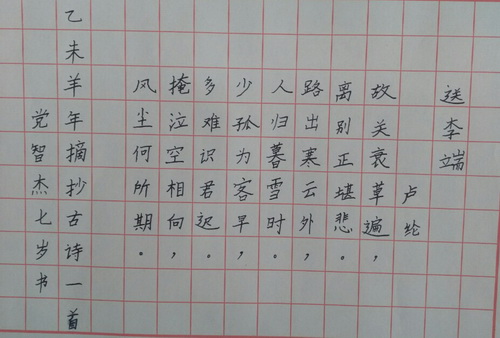 送李端
卢纶
故关衰草遍，
离别正堪悲。
路出寒云外，
人归暮雪时。
少孤为客早，
多难识君迟。
掩泣空相向，
风尘何所期。
乙未羊年摘抄古诗一首
党智杰七岁书